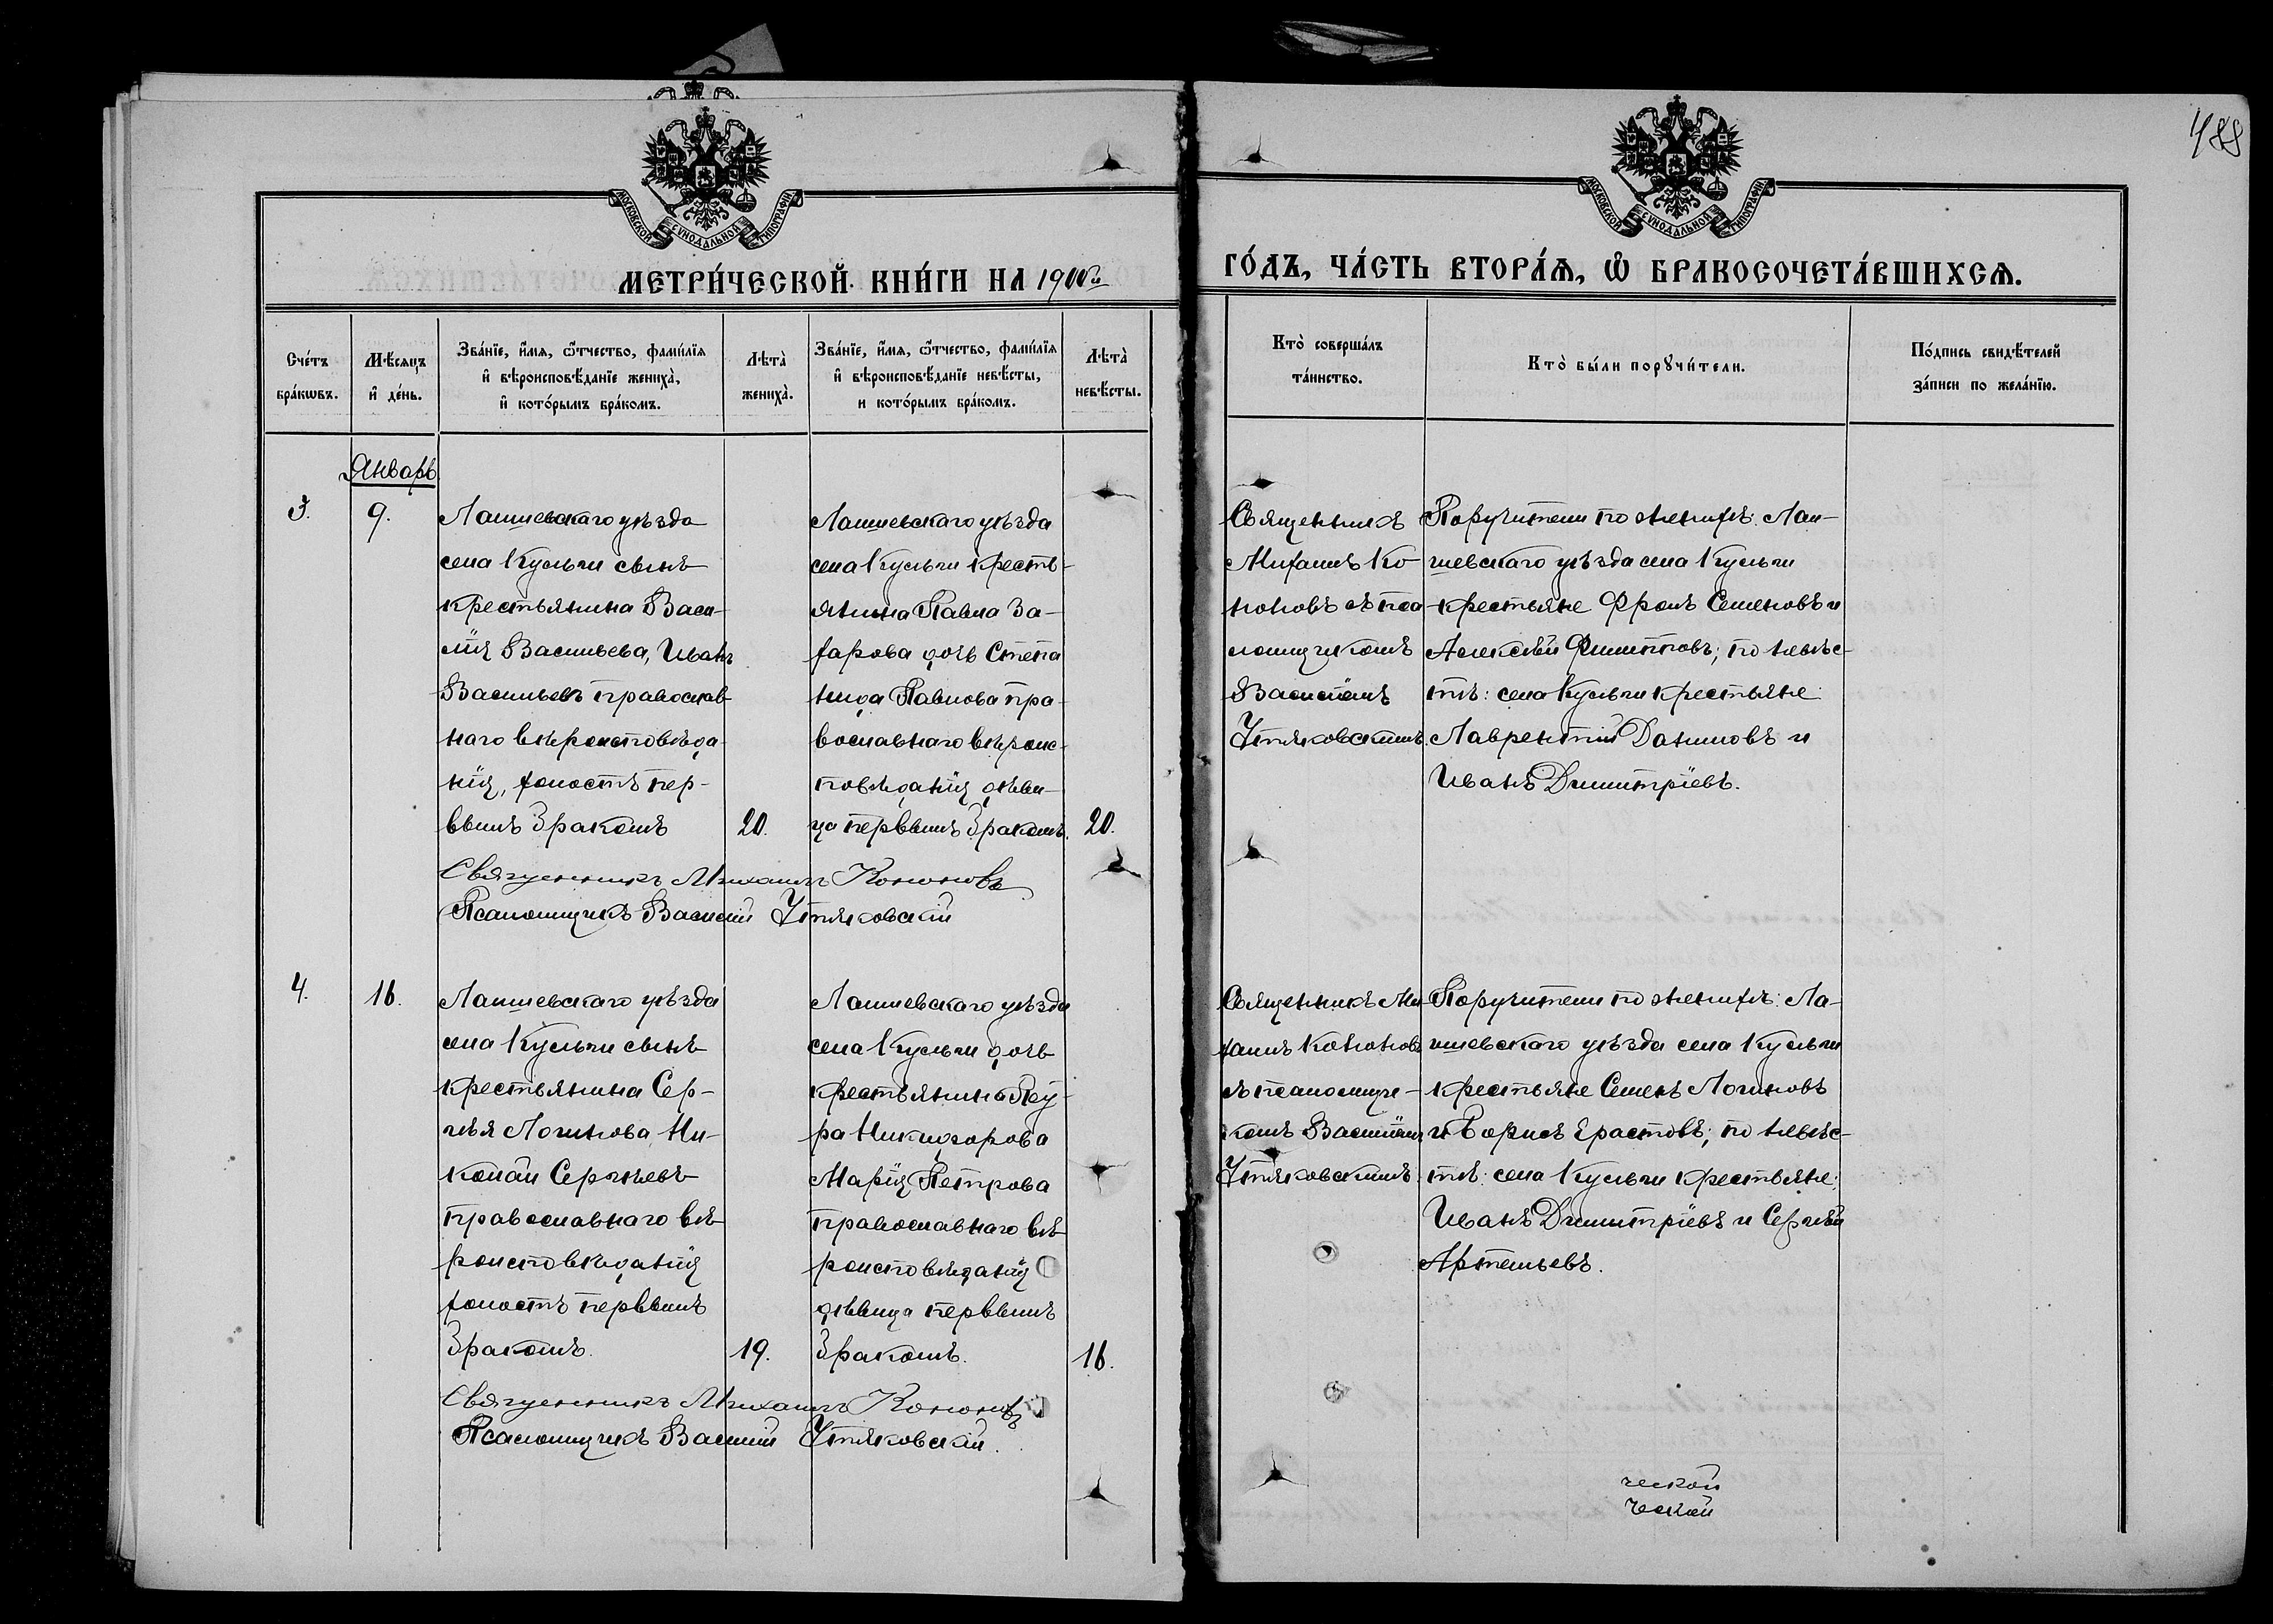 488
МОСКОВСКОЙ СѴНОДАЛЬНОЙ ТИПОГРАФІИ
МОСКОВСКОЙ СѴНОДАЛЬНОЙ ТИПОГРАФІИ
МЕТРИ́ЧЕСКОЙ КНИ́ГИ НА 19
ГО́ДЪ, ЧА́СТЬ ВТОРА́Ѧ, Ѽ БРАКОСОЧЕТА́ВШИХСѦ.
Сче́тъ
бра́кѡвъ.
Мѣ́сѧцъ
и҆ де́нь.
Зва́нїе, и҆́мѧ, ѻ҆́тчество, фами́лїѧ
и҆ вѣроисповѣ́данїе жениха̀,
и҆ кото́рымъ бра́комъ.
Лѣта̀
жениха̀.
Зва́нїе, и҆́мѧ, ѻ҆́тчество, фами́лїѧ
и҆ вѣроисповѣ́данїе невѣ́сты,
и кото́рымъ бра́комъ.
Лѣта̀
невѣ́сты.
Кто̀ соверша́лъ
та́инство.
Кто̀ бы́ли порꙋчи́тели.
По́дпись свидѣ́телей
за́писи по жела́нїю.
Январь
3.
9.
Лаишевскаго уѣзда
села Кульги сынъ
крестьянина Васи-
лія Васильева, Иванъ
Васильевъ православ-
наго вѣроисповѣда-
нія, холостъ пер-
вымъ бракомъ
20.
Лаишевскаго уѣзда
села Кульги кресть-
янина Павла За-
харова дочь Степа
нида Павлова пра-
вославнаго вѣроис-
повѣданія дѣви-
ца первымъ бракомъ.
20.
Священникъ
Михаилъ Ко-
ноновъ съ пса
ломщикомъ
Василіемъ
Утяковскимъ.
Поручители по женихѣ: Лаи-
шевскаго уѣзда села Кульги
крестьяне Фролъ Семеновъ и
Алексѣй Филипповъ; по невѣс-
тѣ: села Кульги крестьяне:
Лаврентій Даниловъ и
Иванъ Димитріевъ.
Священникъ Михаилъ Кононовъ
Псаломщикъ Василій Утяковскій
4.
16.
Лаишевскаго уѣзда
села Кульги сынъ
крестьянина Сер-
гѣя Логинова, Ни-
колай Сергѣевъ
православнаго вѣ-
роисповѣданія
холостъ первымъ
бракомъ.
19.
Лаишевскаго уѣзда
села Кульги дочь
крестьянина Пет-
ра Никифорова
Марія Петрова
православнаго вѣ-
роисповѣданія
дѣвица первымъ
бракомъ.
16.
Священникъ Ми-
хаилъ Кононовъ
съ псаломщи-
комъ Василіемъ
Утяковскимъ.
Поручители по женихѣ: Ла-
ишевскаго уѣзда села Кульги
крестьяне Семенъ Логиновъ
и Борисъ Ерастовъ; по невѣс-
тѣ: села Кульги крестьяне:
Иванъ Димитріевъ и Сергѣй
Артемьевъ.
Священникъ Михаилъ Кононовъ
Псаломщикъ Василій Утяковскій.
ческой
ческой